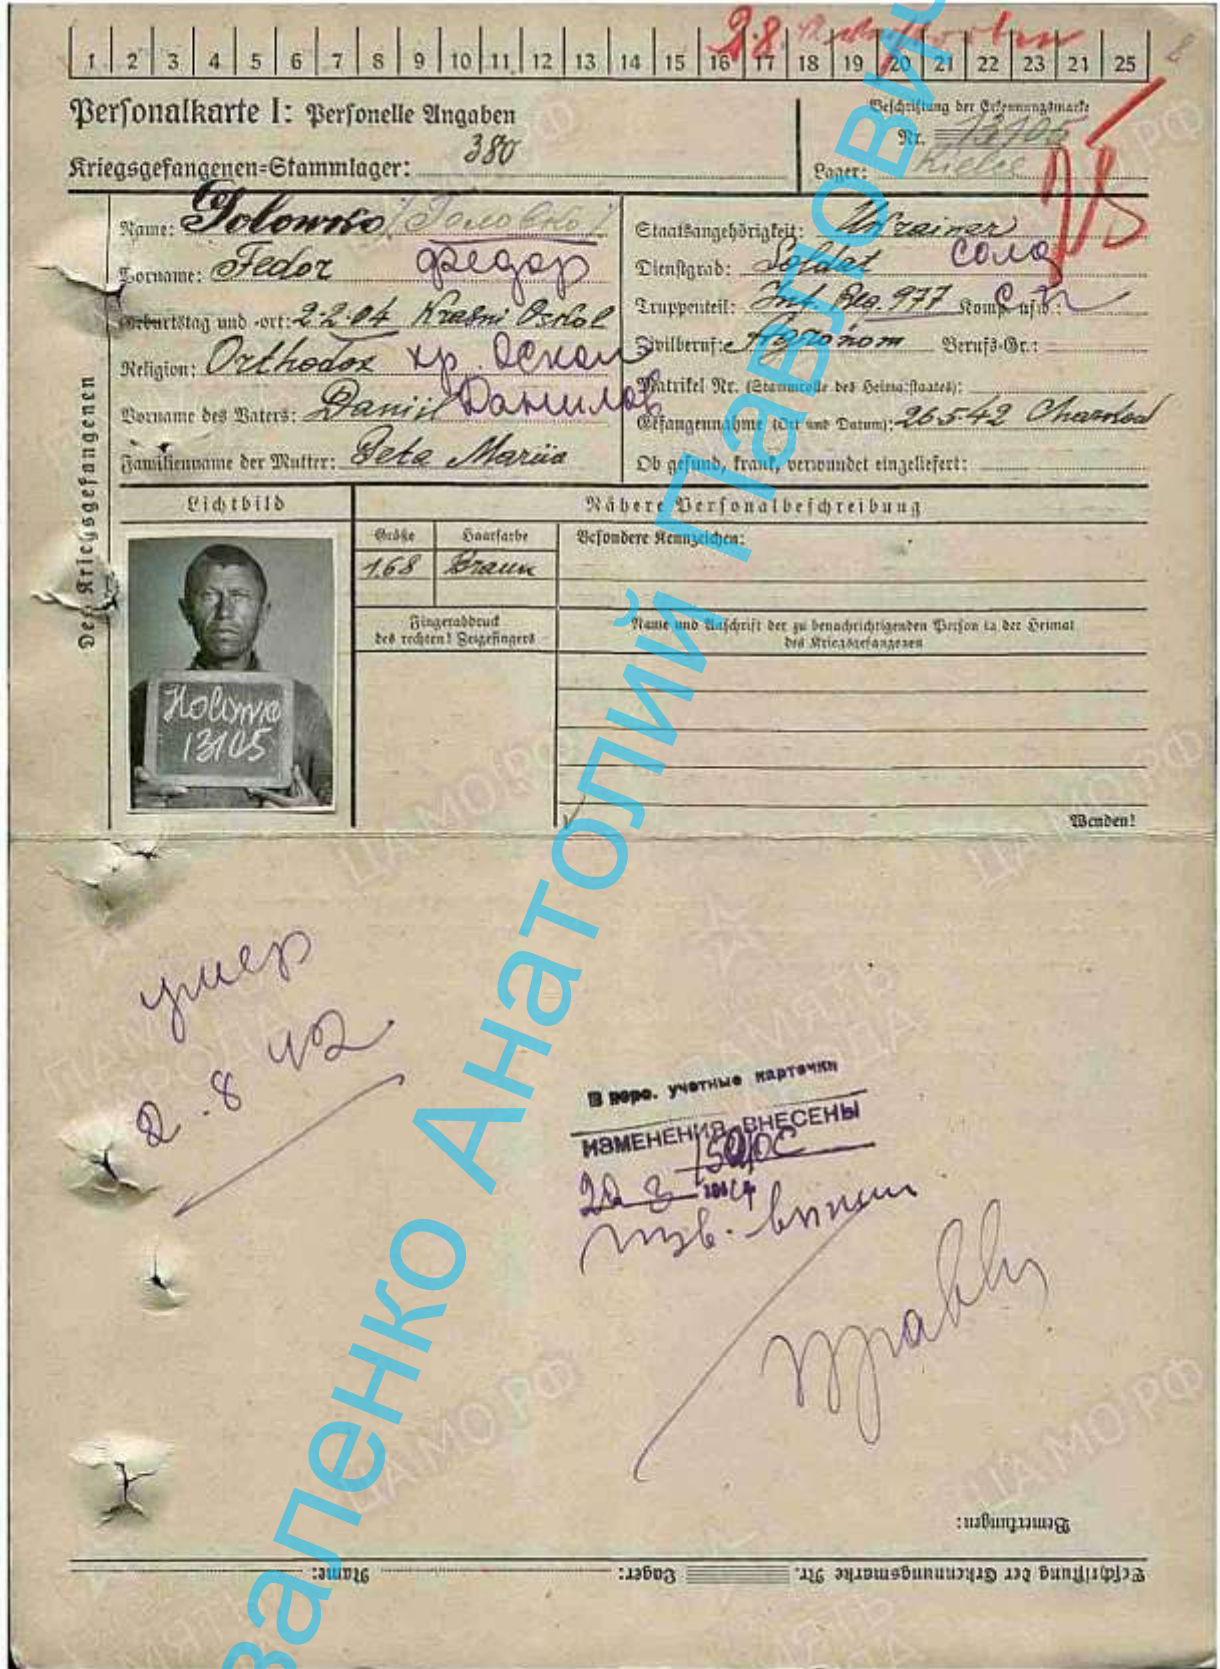 1 2 3 4 5 6 7 8 9 10 11 12 13 14 15 16 17 18 19 20 21 22 23 21 25
2.8.
8
Personalkarte I: Personelle Angaben
Beschriftung der Erkennungsmarke
Nr. 13105
Kriegsgefangenen=Stammlager: 380
Lager: Kielce
Des Kriegsgefangenen
Name: Golowko /Головко/
Vorname: Fedor Федор
Geburtstag und -ort: 2.2.04 Krasni Oskol
Religion: Orthodox кр. Оскол
Vorname des Vaters: Daniil Данилов
Familienname der Mutter: Beta Mariia
Staatsangehörigkeit: Ukrainer
Dienstgrad: Soldat солд
Truppenteil: Inf. Reg. 977 Komp. usw.: с. п
Zivilberuf: Agronom Berufs-Gr.:
Matrikel Nr. (Stammrolle des Heimatstaates):
Gefangennahme (Ort und Datum): 26.5.42 Charkow
Ob gesund, krank, verwundet eingeliefert:
Lichtbild
Nähere Personalbeschreibung
Größe Haarfarbe Besondere Kennzeichen:
1.68 Braun
Fingerabdruck
des rechten! Zeigefingers
Name und Anschrift der zu benachrichtigenden Person in der Heimat
des Kriegsgefangenen
13105
Wenden!
умер
2.8 42
В перс. учетные карточки
ИЗМЕНЕНИЯ ВНЕСЕНЫ
Bemerkungen:
Beschriftung der Erkennungsmarke Nr. Lager: Name:
заленко Анатолий Павлович
ЦАМО.РФ
ПАМЯТЬ
НАРОДА